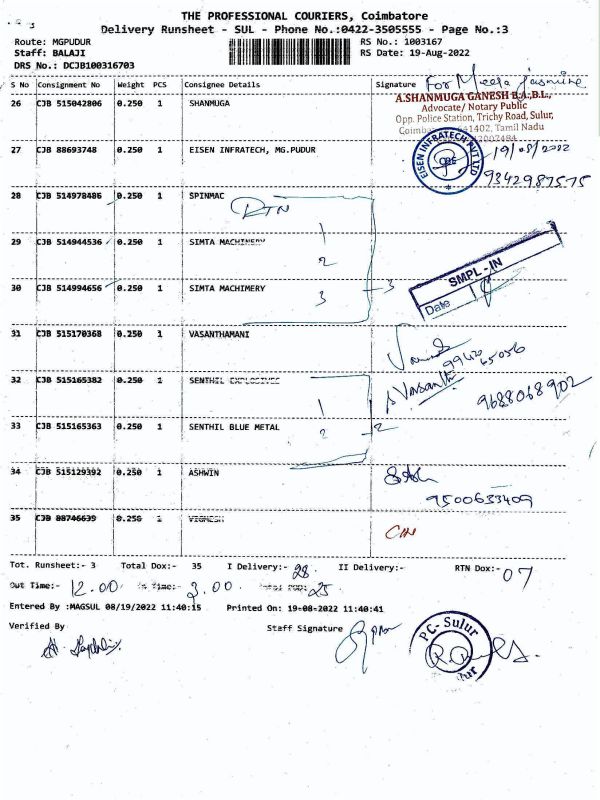 THE PROFESSIONAL COURIERS, Coimbatore
Delivery Runsheet - SUL - Phone No.:0422-3505555 - Page No.:3
Route: MGPUDUR RS No.: 1003167
Staff: BALAJI RS Date: 19-Aug-2022
DRS No.: DCJB100316703
S No Consignment No Weight PCS Consignee Details Signature For Meela Jasmine
26 CJB 515042806 0.250 1 SHANMUGA
A.SHANMUGA GANESH B.A.,B.L.,
Advocate/ Notary Public
Opp. Police Station, Trichy Road, Sulur,
641402, Tamil Nadu
27 CJB 88693748 0.250 1 EISEN INFRATECH, MG.PUDUR
EISEN INFRATECH PVT LTD
19/08/2022
9342987575
28 CJB 514978486 0.250 1 SPINMAC
RTN
29 CJB 514944536 0.250 1 SIMTA MACHINERY
1
2
30 CJB 514994656 0.250 1 SIMTA MACHIMERY
3 3
SMPL-IN
Date
31 CJB 515170368 0.250 1 VASANTHAMANI
99420 65056
32 CJB 515165382 0.250 1 SENTHIL EXPLOSIVES
Vasanth
9688068902
1
33 CJB 515165363 0.250 1 SENTHIL BLUE METAL
2 2
34 CJB 515129392 0.250 1 ASHWIN
9500633409
35 CJB 88746639 0.250 1 VIGNESH
Tot. Runsheet:- 3 Total Dox:- 35 I Delivery:- 28 II Delivery:- RTN Dox:- 07
Out Time:- 12.00 In Time:- 3.00 Total POD: 25
Entered By :MAGSUL 08/19/2022 11:40:15 Printed On: 19-08-2022 11:40:41
Verified By Staff Signature
PC- Sulur